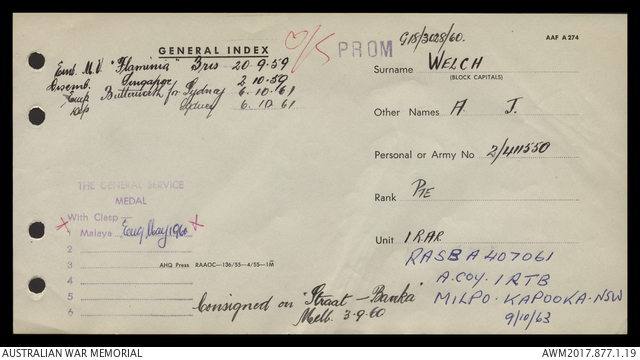 GENERAL INDEX
O/S
PROM
G18/3028/60.
AAF A 274
Emb. M.V. "Flaminia" Bris - 20-9-59
Disemb. Singapore 2.10.59
Emp Butterworth for Sydney 6.10.61
Sydney 6.10.61
Surname WELCH
(BLOCK CAPITALS)
Other Names A. J.
Personal or Army No 2/411550
Rank PTE
Unit 1 RAR
RASB A 407061
A. COY. 1 RTB
MILPO - KAPOOKA - NSW
9/10/63
THE GENERAL SERVICE
MEDAL
With Clasp
1 Malaya May 1960
2
3
4
5
6
AHQ Press RAAOC—136/55—4/55—1M
Consigned on "Straat - Banka"
Melb. 3-9-60
AUSTRALIAN WAR MEMORIAL
AWM2017.877.1.19